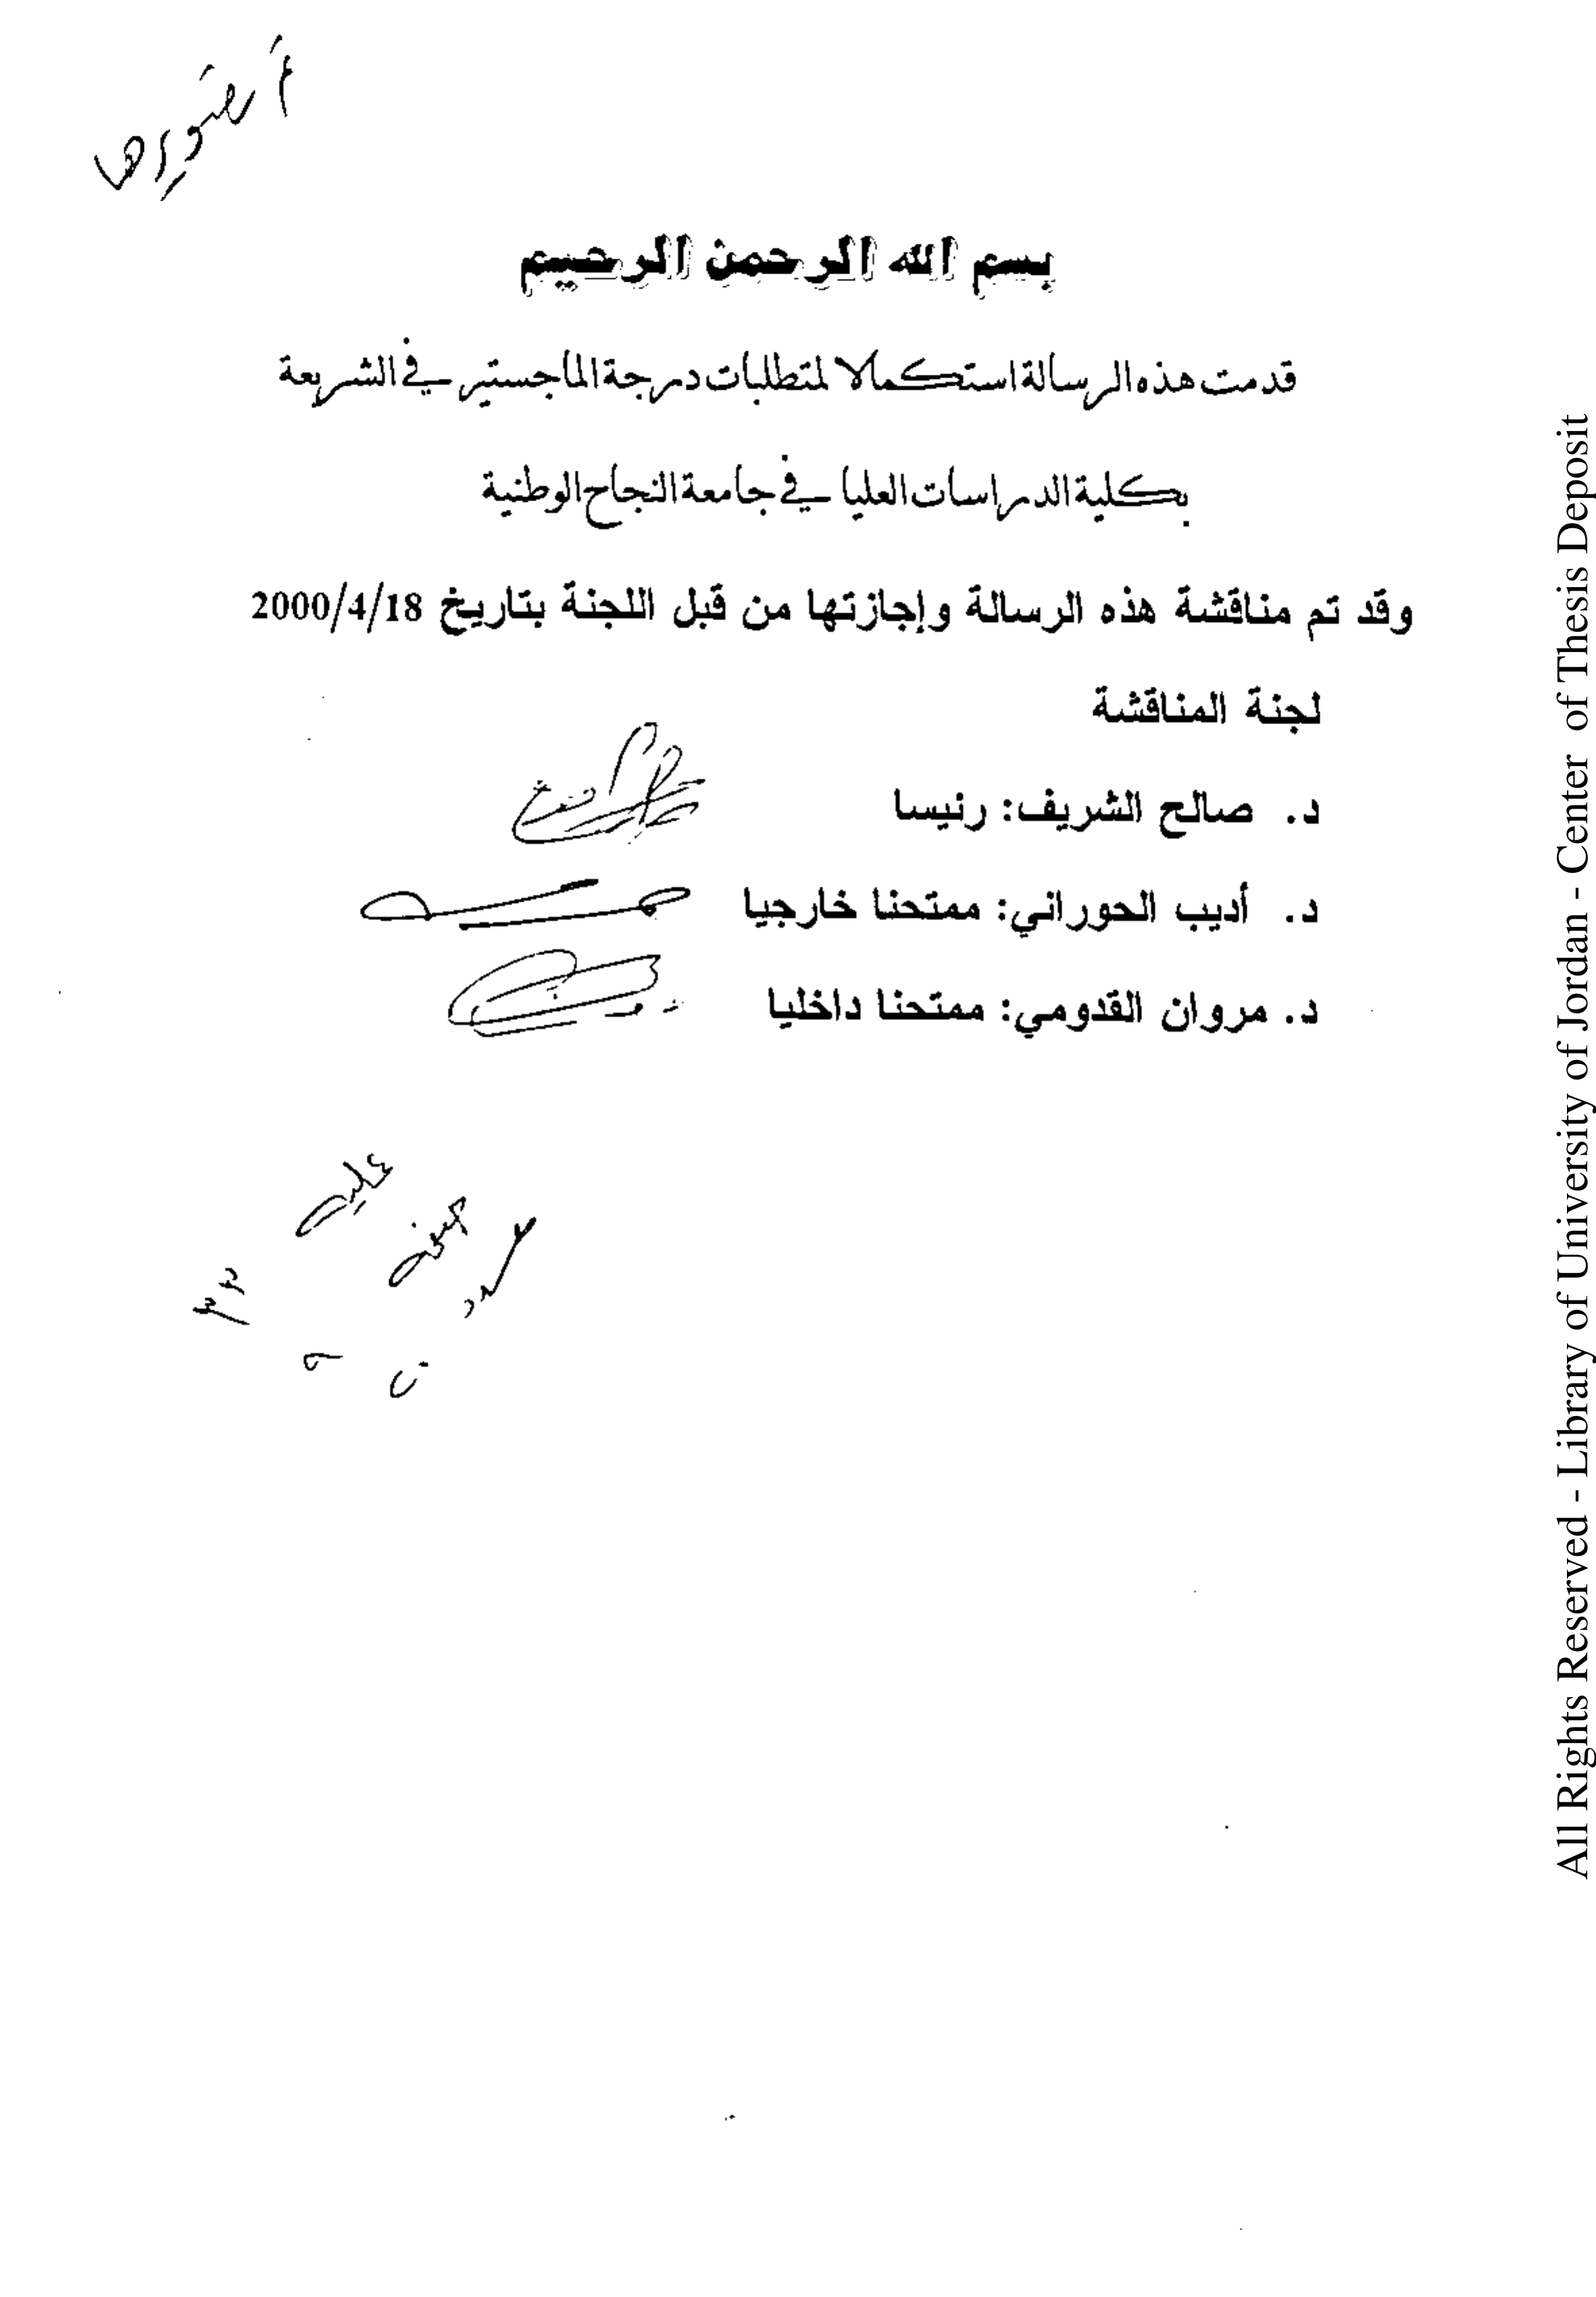 بسم الله الرحمن الرحيم
قدمت هذه الرسالة استكمالا لمتطلبات درجة الماجستير في الشريعة
بكلية الدراسات العليا في جامعة النجاح الوطنية
وقد تم مناقشة هذه الرسالة وإجازتها من قبل اللجنة بتاريخ 2000/4/18
لجنة المناقشة
د. صالح الشريف: رئيسا
د. أديب الحوراني: ممتحنا خارجيا
د. مروان القدومي: ممتحنا داخليا
All Rights Reserved - Library of University of Jordan - Center of Thesis Deposit